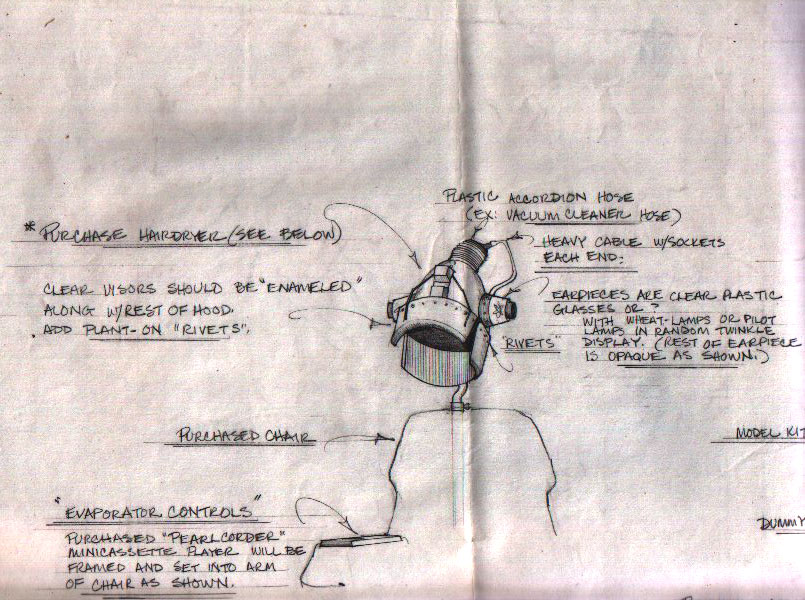 PLASTIC ACCORDION HOSE
(EX: VACUUM CLEANER HOSE)
* PURCHASE HAIRDRYER (SEE BELOW)
HEAVY CABLE W/SOCKETS
EACH END.
CLEAR VISORS SHOULD BE "ENAMELED"
ALONG W/REST OF HOOD.
ADD PLANT-ON "RIVETS".
EARPIECES ARE CLEAR PLASTIC
GLASSES OR ?
WITH WHEAT-LAMPS OR PILOT
LAMPS IN RANDOM TWINKLE
DISPLAY. (REST OF EARPIECE
IS OPAQUE AS SHOWN.)
"RIVETS"
PURCHASED CHAIR
MODEL KIT
"EVAPORATOR CONTROLS"
PURCHASED "PEARLCORDER"
MINICASSETTE PLAYER WILL BE
FRAMED AND SET INTO ARM
OF CHAIR AS SHOWN.
DUMMY